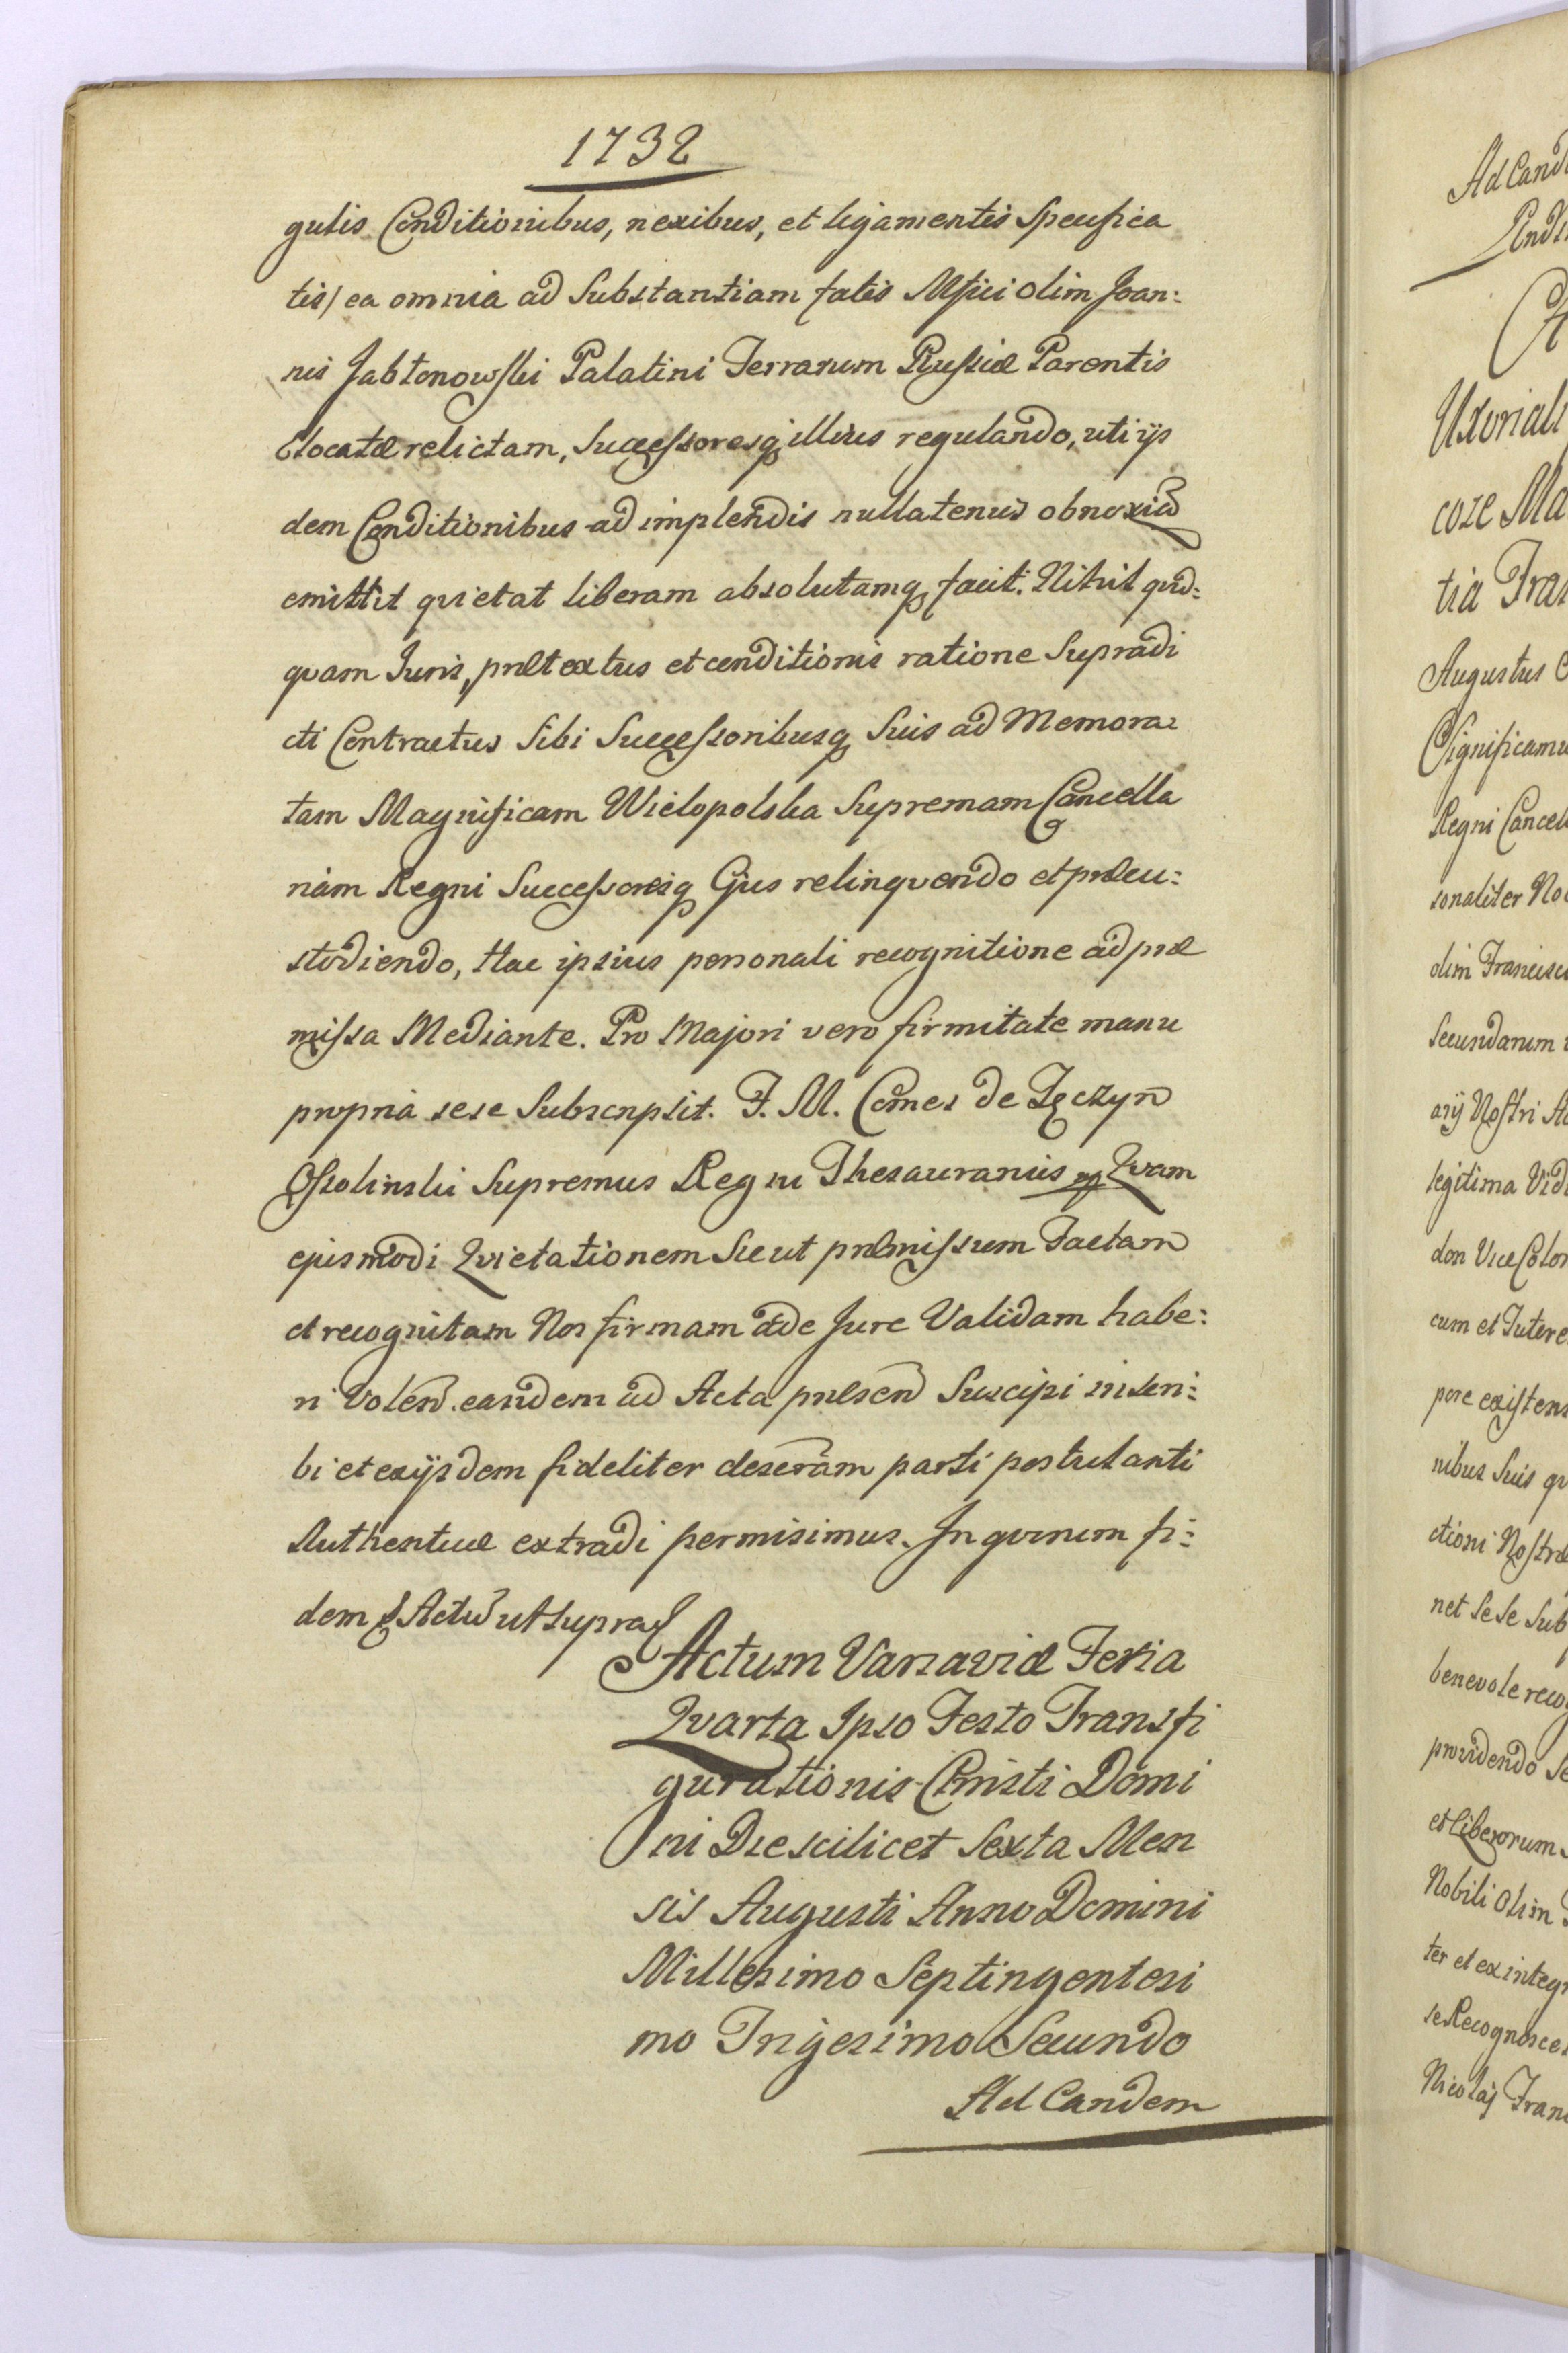 1732
gulis Conditionibus, nexibus, et ligamentis Specifica
tis/ ea omnia ad Substantiam fatis Mffici olim Joan:
nis Jabłonowski Palatini Terrarum Russiæ Parentis
Elocatæ relictam, Successoresq illius regulando, uti ijs
dem Conditionibus adimplendis nullatenus obnoxiā
emittit quietat liberam absolutamq facit. Nihil quid:
quam Juris, prætextus et conditionis ratione Supradi
cti Contractus Sibi Successoribusq Suis ad Memora:
tam Magnificam Wielopolska Supremam Cancella
riam Regni Successoresq Ejus relinquendo et præcu:
stodiendo, Hac ipsius personali recognitione ad præ
missa Mediante. Pro Majori vero firmitate manu
propria sese Subscripsit. F. M. Comes de Tęczyn
Ossolinski Supremus Regni Thesaurarius mp Quam
ejusmodi Quietationem Sicut præmissum Factam
et recognitam Nos firmam de Jure Validam habe:
ri Volen eandem ad Acta præsen Suscipi inscri:
bi et exijsdem fideliter parti postulanti
Authentice extradi permisimus. In quorum fi:
dem Actū ut supra
Actum Varsaviæ Feria
Quarta Ipso Festo Transfi
gurationis Christi Domi
ni Die scilicet Sexta Men
sis Augusti Anno Domini
Millesimo Septingentesi
mo Trigesimo Secundo
Ad Eandem
Uxoriali
Augustus
Significamu
Regni Cancel
sonaliter No
olim Francis
Secundarum
legitima Vid
cum et Intere
pore existens
nibus Suis qu
ctioni Nostræ
net Sese Sub
benevole reco
providendo Se
et Liberorum
Nobili olim
ter et ex integ
se Recognosce
Nicolaj Fran